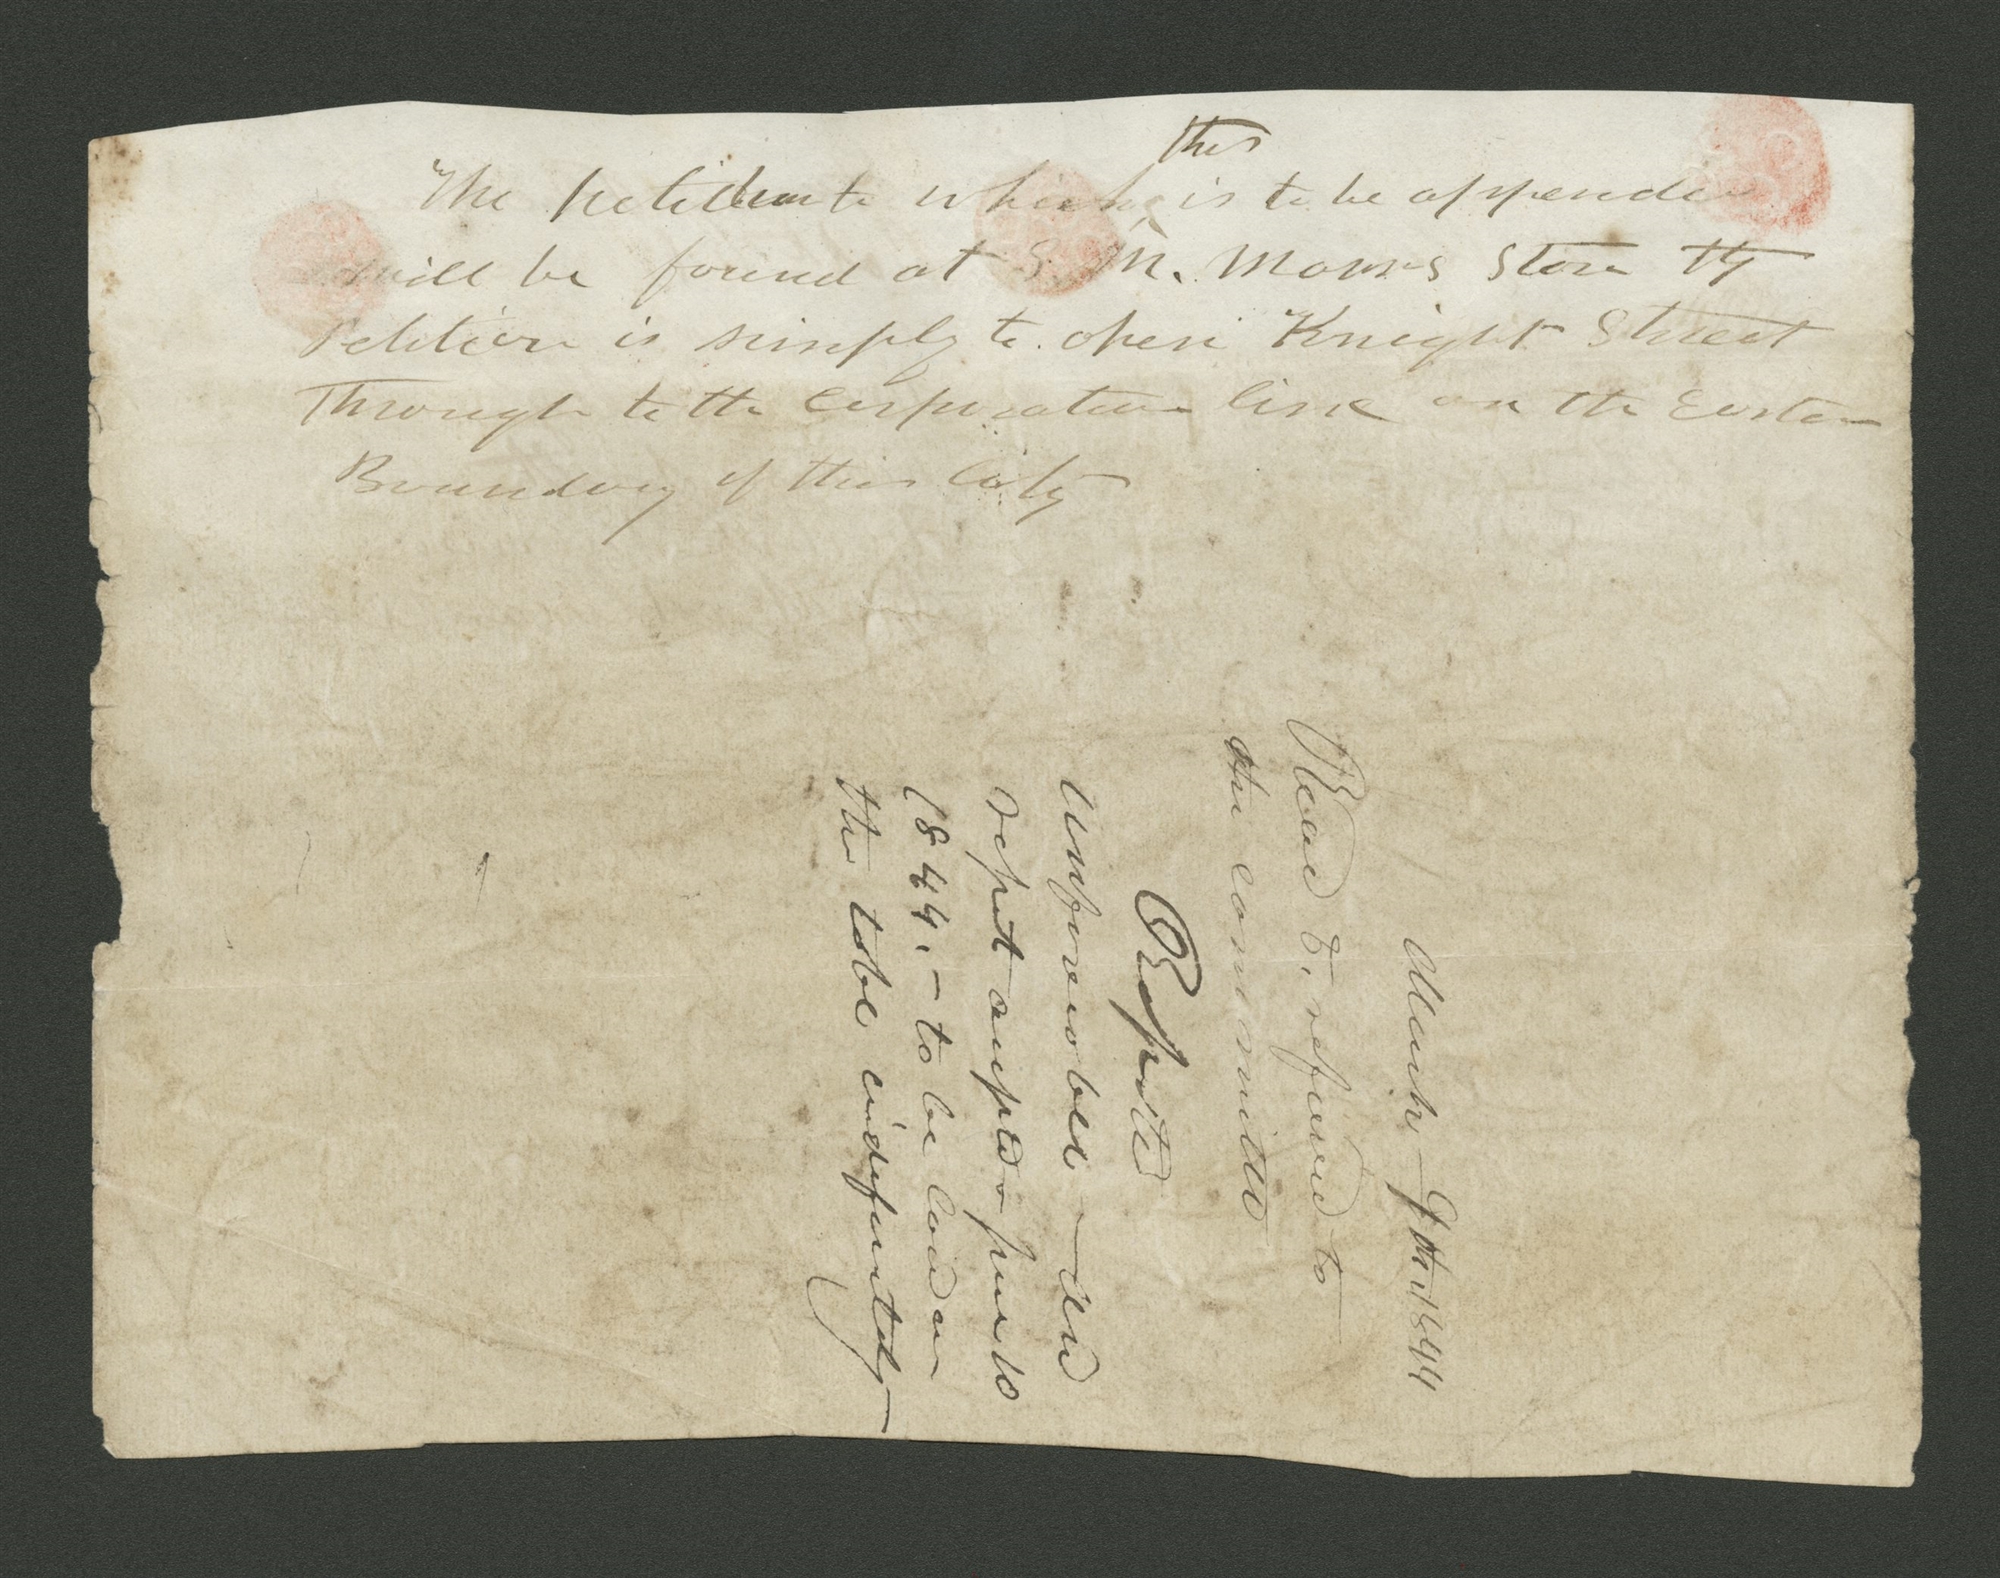 this
The petition to which is to be appended
will be found at S. M. Marrs Store the
Petition is simply to open Knight Street
Through to the Corporation line on the Eastern
Boundary of this City
March 9th 1844
Read & refered to
the committee
Reported
unfavorabl — and
report accepted June 10
1844, - to be laid on
the table indefinitely